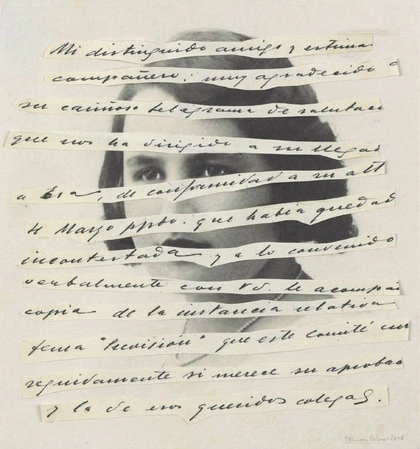 Mi distinguido amigo y estima
compañero: muy agradecido a
su cariñoso telegrama de salutaci
que nos ha dirigido a su llegad
a Esa, de conformidad a su att
4 Marzo ppdo. que había quedad
incontestada y a lo convenido
verbalmente con Vd. le acompañ
copia de la instancia relativa
tema "Previsión" que este Comité
seguidamente si merece su aproba
y la de esos queridos colegas.